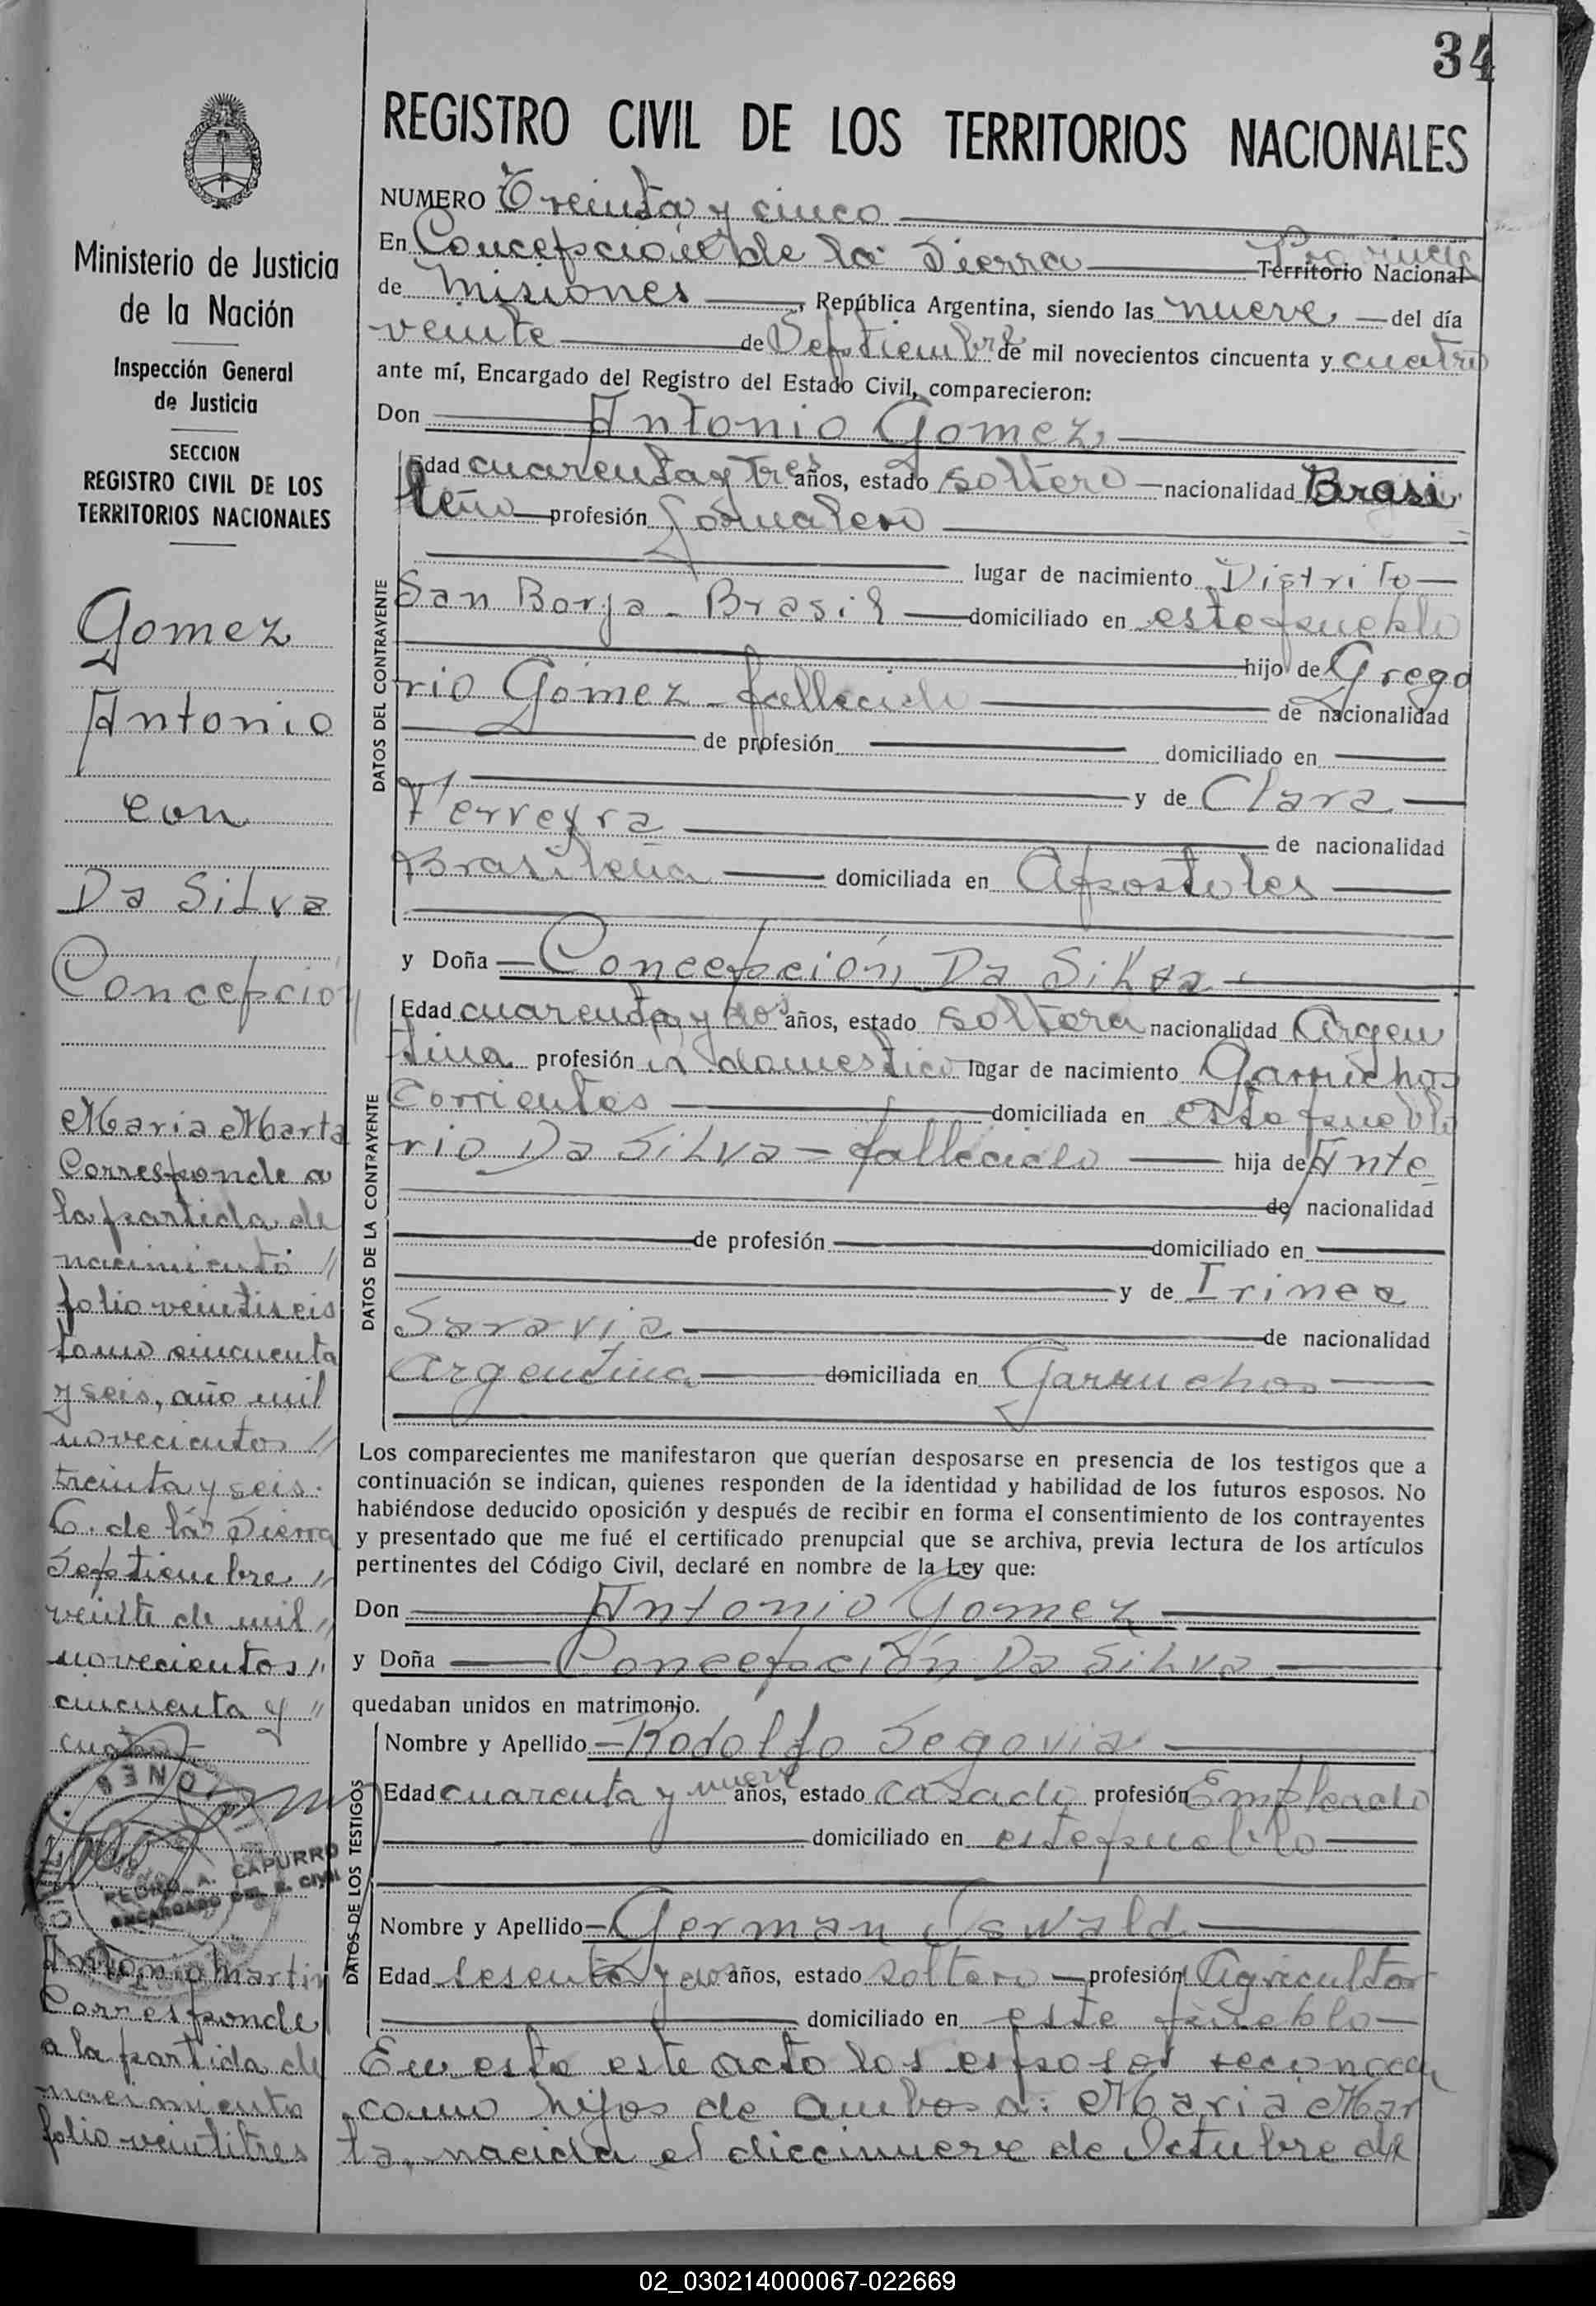 34
REGISTRO CIVIL DE LOS TERRITORIOS NACIONALES
Ministerio de Justicia
de la Nación
Inspección General
de Justicia
SECCION
REGISTRO CIVIL DE LOS
TERRITORIOS NACIONALES
Gomez
Antonio
con
Da Silva
Concepcion
Maria Marta
Corresponde a
la partida de
nacimiento //
folio veintiseis
tomo cincuenta
y seis, año mil
novecientos //
treinta y seis.
C. de la Sierra
Septiembre //
veinte de mil //
novecientos //
cincuenta y //
cuatro
PEDRO A. CAPURRO
ENCARGADO DEL R. CIVIL
Antonio Martin
Corresponde
a la partida de
nacimiento
folio veintitres
NUMERO Treinta y cinco
En Concepción de la Sierra Provincia Territorio Nacional
de Misiones, República Argentina, siendo las nueve del día
veinte de Septiembre de mil novecientos cincuenta y cuatro
ante mí, Encargado del Registro del Estado Civil, comparecieron:
Don Antonio Gomez
DATOS DEL CONTRAYENTE
Edad cuarenta y tres años, estado soltero nacionalidad Brasi
leño profesión Jornalero
lugar de nacimiento Distrito
San Borja - Brasil domiciliado en este pueblo
hijo de Grego
rio Gomez - fallecido de nacionalidad
de profesión domiciliado en
y de Clara
Ferreyra de nacionalidad
Brasileña domiciliada en Apostoles
y Doña Concepción Da Silva
DATOS DE LA CONTRAYENTE
Edad cuarenta y dos años, estado soltera nacionalidad Argen
tina profesión domestico lugar de nacimiento Garruchos
Corrientes domiciliada en este pueblo
rio Da Silva - fallecido hija de Ante
de nacionalidad
de profesión domiciliado en
y de Irinea
Saravia de nacionalidad
Argentina domiciliada en Garruchos
Los comparecientes me manifestaron que querían desposarse en presencia de los testigos que a
continuación se indican, quienes responden de la identidad y habilidad de los futuros esposos. No
habiéndose deducido oposición y después de recibir en forma el consentimiento de los contrayentes
y presentado que me fué el certificado prenupcial que se archiva, previa lectura de los artículos
pertinentes del Código Civil, declaré en nombre de la Ley que:
Don Antonio Gomez
y Doña Concepción Da Silva
quedaban unidos en matrimonio.
DATOS DE LOS TESTIGOS
Nombre y Apellido Rodolfo Segovia
Edad cuarenta y nueve años, estado casado profesión Empleado
domiciliado en este pueblo
Nombre y Apellido German Oswald
Edad sesenta y dos años, estado soltero profesión Agricultor
domiciliado en este pueblo
En este este acto los esposos reconocen
como hijos de ambos a: Maria Mar
ta, nacida el diecinueve de Octubre de
02_030214000067-022669